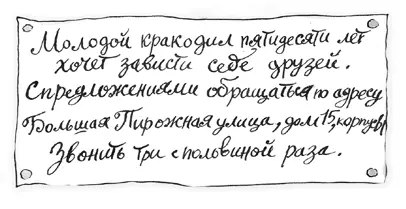 Молодой кракодил пятидесяти лет
хочет зависти себе друзей.
С предложениями обращаться по адресу
Большая Пирожная улица, дом 15, корпус
Звонить три с половиной раза.